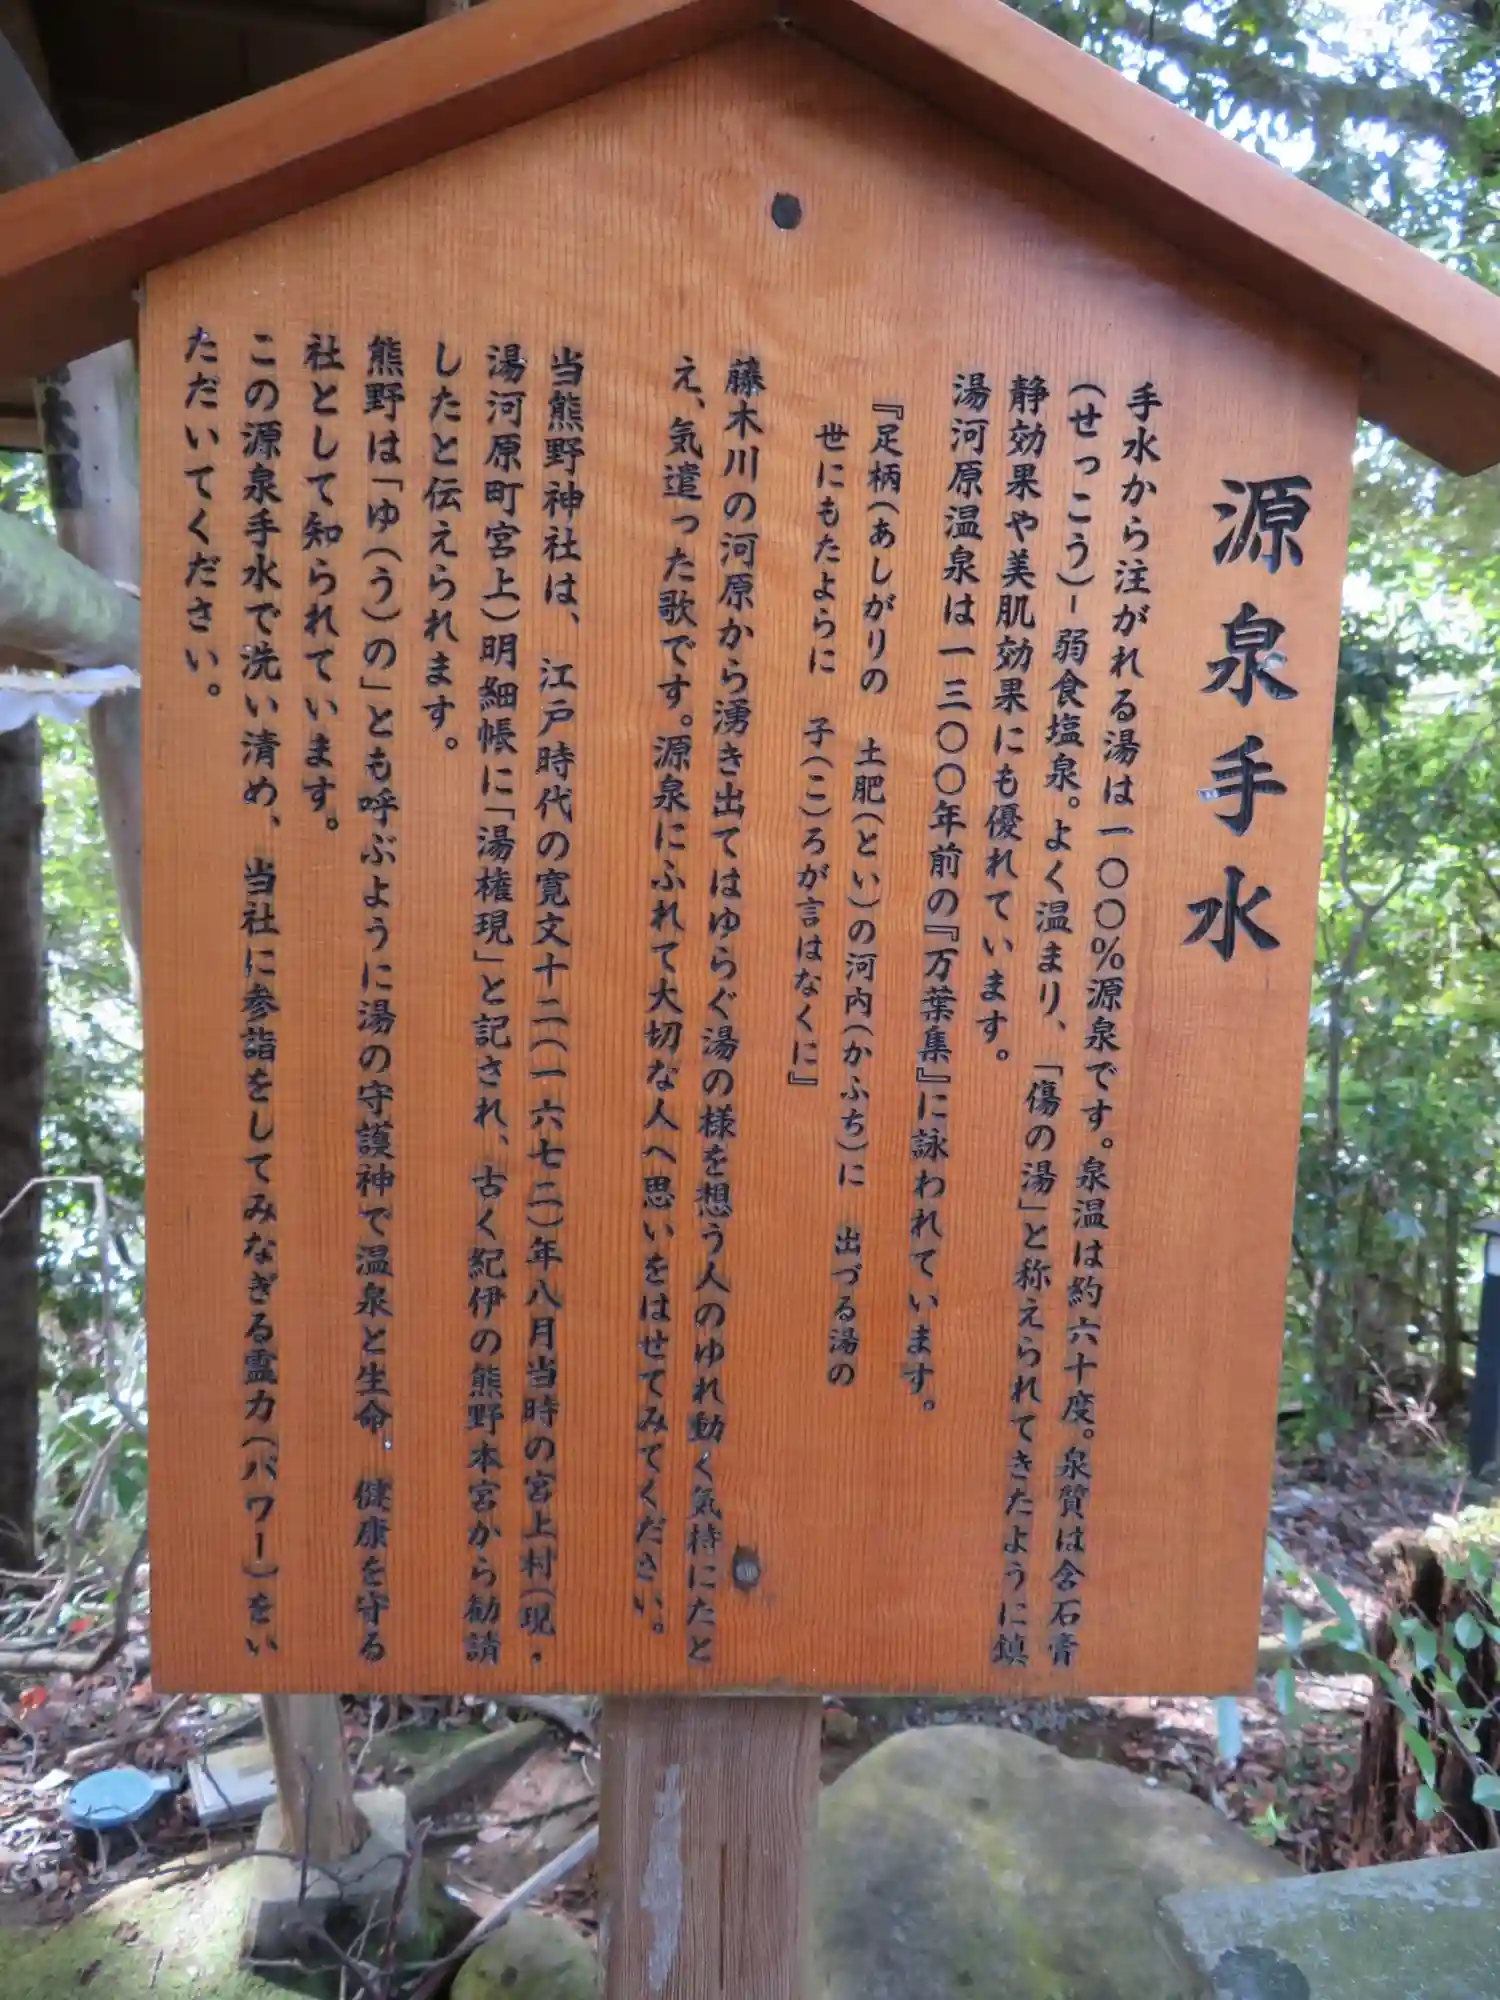 源泉手水
手水から注がれる湯は一〇〇%源泉です。泉温は約六十度。泉質は含石膏
(せっこう)-弱食塩泉。よく温まり、「傷の湯」と称えられてきたように鎮
静効果や美肌効果にも優れています。
湯河原温泉は一三〇〇年前の『万葉集』に詠われています。
『足柄(あしがり)の 土肥(とい)の河内(かふち)に 出づる湯の
世にもたよらに 子(こ)ろが言はなくに』
藤木川の河原から湧き出てはゆらぐ湯の様を想う人のゆれ動く気持にたと
え、気遣った歌です。源泉にふれて大切な人へ思いをはせてみてください。
当熊野神社は、江戸時代の寛文十二(一六七二)年八月当時の宮上村(現・
湯河原町宮上)明細帳に「湯権現」と記され、古く紀伊の熊野本宮から勧請
したと伝えられます。
熊野は「ゆ(う)の」とも呼ぶように湯の守護神で温泉と生命、健康を守る
社として知られています。
この源泉手水で洗い清め、当社に参詣をしてみなぎる霊力(パワー)をい
ただいてください。